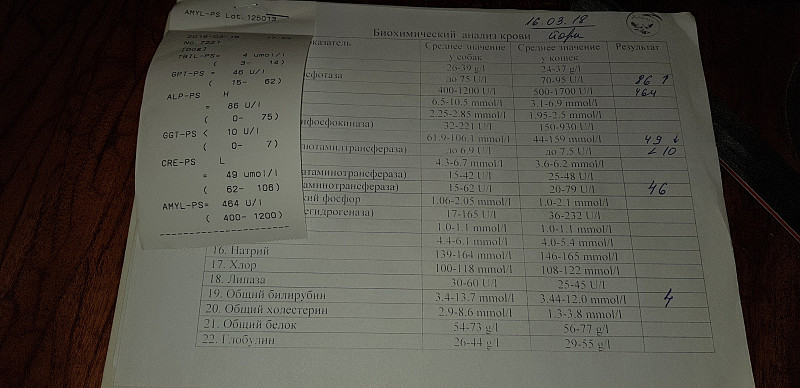 AMYL-PS Lot.125013
No.7227
[DOG]
TBIL-PS= 4 umol/l
( 3- 14)
GPT-PS = 46 U/l
( 15- 62)
ALP-PS H
= 86 U/l
( 0- 75)
GGT-PS < 10 U/l
( 0- 7)
CRE-PS L
= 49 umol/l
( 62- 106)
AMYL-PS= 464 U/l
( 400- 1200)
16.03.18
Биохимический анализ крови
казатель Среднее значение у собак Среднее значение у кошек Результат
26-39 g/l 24-37 g/l
фотаза до 75 U/l 70-95 U/l 86 ↑
400-1200 U/l 500-1700 U/l 464
6.5-10.5 mmol/l 3.1-6.9 mmol/l
2.25-2.85 mmol/l 1.95-2.5 mmol/l
фосфокиназа) 32-221 U/l 150-930 U/l
61.9-106.1 mmol/l 44-159 mmol/l 49 ↓
лютамилтрансфераза) до 6.9 U/l до 7.5 U/l <10
4.3-6.7 mmol/l 3.6-6.2 mmol/l
атаминотрансфераза) 15-42 U/l 25-48 U/l
аминотрансфераза) 15-62 U/l 20-79 U/l 46
кий фосфор 1.06-2.05 mmol/l 1.0-2.1 mmol/l
егидрогеназа) 17-165 U/l 36-232 U/l
1.0-1.1 mmol/l 1.0-1.1 mmol/l
4.4-6.1 mmol/l 4.0-5.4 mmol/l
16. Натрий 139-164 mmol/l 146-165 mmol/l
17. Хлор 100-118 mmol/l 108-122 mmol/l
18. Липаза 30-60 U/l 25-45 U/l
19. Общий билирубин 3.4-13.7 mmol/l 3.44-12.0 mmol/l 4
20. Общий холестерин 2.9-8.6 mmol/l 1.3-3.8 mmol/l
21. Общий белок 54-73 g/l 56-77 g/l
22. Глобулин 26-44 g/l 29-55 g/l